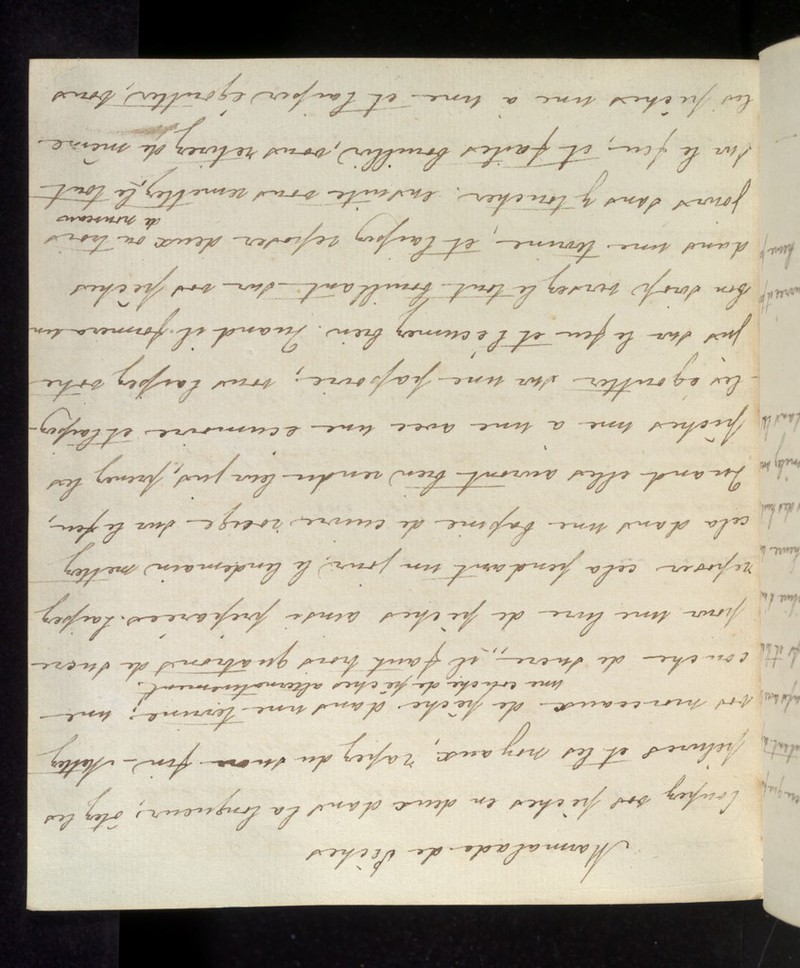 Marmalade de Pêches
Coupez vos pêches en deux dans la longueur, ôtez les
pelures et les noyaux, rapez du sucre fin - Mettez
vos morceaux de pêche dans une terrine; une
une couche de pêches alternativement.
couche de sucre, il faut trois quatrons de sucre
pour une livre de pêches ainsi préparées. Laissez
reposer cela pendant un jour; le lendemain mettez
cela dans une bassine de cuivre rouge sur le feu,
Quand elles auront bien rendu leur jus, prenez les
pêches une a une avec une ecumoire et laissez-
-les égoutter sur une passoire; vous laissez votre
jus sur le feu et l'écumez bien. Quand il formera un
bon sirop versez le tout bouillant sur vos pêches
dans une terrine, et laissez reposer deux ou trois
jours sans y toucher. ensuite vous remettez le tout
de nouveau
sur le feu, et faites bouillir, vous retirez de même
les pêches une à une et laissez égoutter, vous